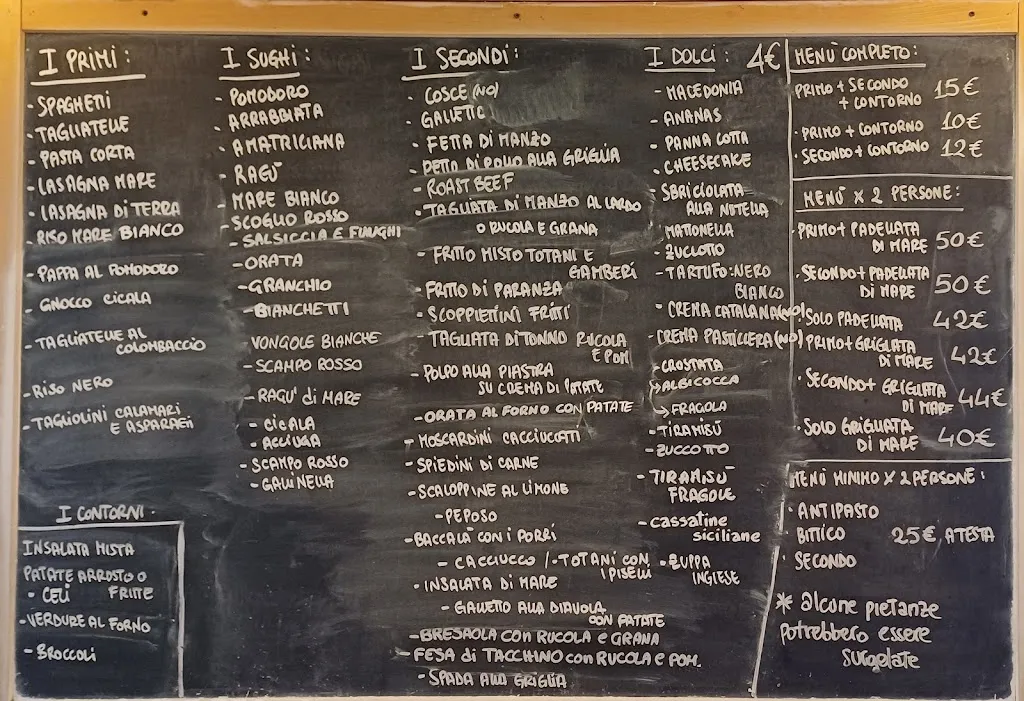 I PRIMI:
- SPAGHETTI
- TAGLIATELLE
- PASTA CORTA
- LASAGNA MARE
- LASAGNA DI TERRA
- RISO MARE BIANCO
- PAPPA AL POMODORO
- GNOCCO CICALA
- TAGLIATELLE AL
COLOMBACCIO
- RISO NERO
- TAGLIOLINI CALAMARI
E ASPARAGI
I CONTORNI.
INSALATA MISTA
PATATE ARROSTO O
FRITTE
- CECI
- VERDURE AL FORNO
- BROCCOLI
I SUGHI:
- POMODORO
- ARRABBIATA
- AMATRICIANA
- RAGÙ
- MARE BIANCO
- SCOGLIO ROSSO
- SALSICCIA E FUNGHI
- ORATA
- GRANCHIO
- BIANCHETTI
- VONGOLE BIANCHE
- SCAMPO ROSSO
- RAGU' di MARE
- CICALA
- ACCIUGA
- SCAMPO ROSSO
- GALLINELLA
I SECONDI:
- COSCE (NO)
- GALLETTO
- FETTA DI MANZO
- PETTO DI POLLO ALLA GRIGLIA
- ROAST BEEF
- TAGLIATA DI MANZO AL LARDO
O RUCOLA E GRANA
- FRITTO MISTO TOTANI E
GAMBERI
- FRITTO DI PARANZA
- SCOPPIETTINI FRITTI
- TAGLIATA DI TONNO RUCOLA
E POM
- POLPO ALLA PIASTRA
SU CREMA DI PATATE
- ORATA AL FORNO CON PATATE
- MOSCARDINI CACCIUCCATI
- SPIEDINI DI CARNE
- SCALOPPINE AL LIMONE
- PEPOSO
- BACCALÀ CON I PORRI
- CACCIUCCO /- TOTANI CON
I PISELLI
- INSALATA DI MARE
- GALLETTO ALLA DIAVOLA
CON PATATE
- BRESAOLA CON RUCOLA E GRANA
- FESA di TACCHINO con RUCOLA E POM.
- SPADA ALLA GRIGLIA
I DOLCI: 4€
- MACEDONIA
- ANANAS
- PANNA COTTA
- CHEESECAKE
- SBRICIOLATA
ALLA NUTELLA
- MATTONELLA
- ZUCCOTTO
- TARTUFO: NERO
BIANCO
- CREMA CATALANA (NO)
- CREMA PASTICCERA (NO)
- CROSTATA
→ ALBICOCCA
→ FRAGOLA
- TIRAMISÙ
- ZUCCOTTO
- TIRAMISU'
FRAGOLE
- cassatine
siciliane
- ZUPPA
INGLESE
MENÙ COMPLETO:
PRIMO + SECONDO
+ CONTORNO 15€
- PRIMO + CONTORNO 10€
- SECONDO + CONTORNO 12€
MENÙ X 2 PERSONE:
- PRIMO + PADELLATA
DI MARE 50€
- SECONDO + PADELLATA
DI MARE 50€
- SOLO PADELLATA 42€
- PRIMO + GRIGLIATA
DI MARE 42€
- SECONDO + GRIGLIATA
DI MARE 44€
- SOLO GRIGLIATA
DI MARE 40€
MENÙ MINIMO X 2 PERSONE:
- ANTIPASTO
BITTICO 25€ A TESTA
SECONDO
* alcune pietanze
potrebbero essere
surgelate